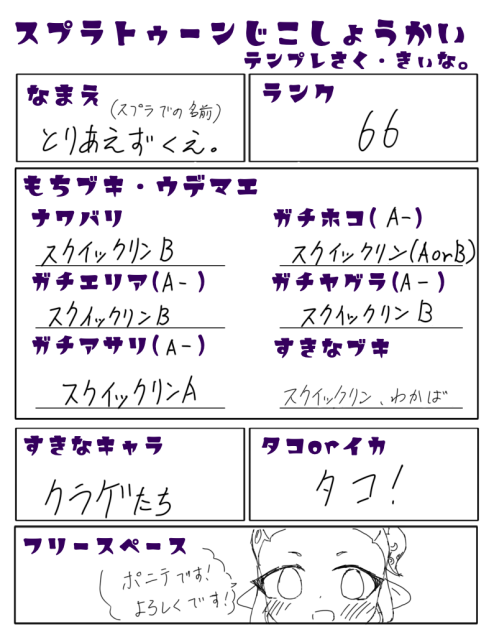 スプラトゥーンじこしょうかい
テンプレさく・きぃな。
なまえ
(スプラでの名前)
とりあえずくえ。
ランク
66
もちブキ・ウデマエ
ナワバリ
スクイックリンB
ガチホコ(A-)
スクイックリン(AorB)
ガチエリア(A-)
スクイックリンB
ガチヤグラ(A-)
スクイックリンB
ガチアサリ(A-)
スクイックリンA
すきなブキ
スクイックリン、わかば
すきなキャラ
クラゲたち
タコorイカ
タコ!
フリースペース
ポニテです!
よろしくです!